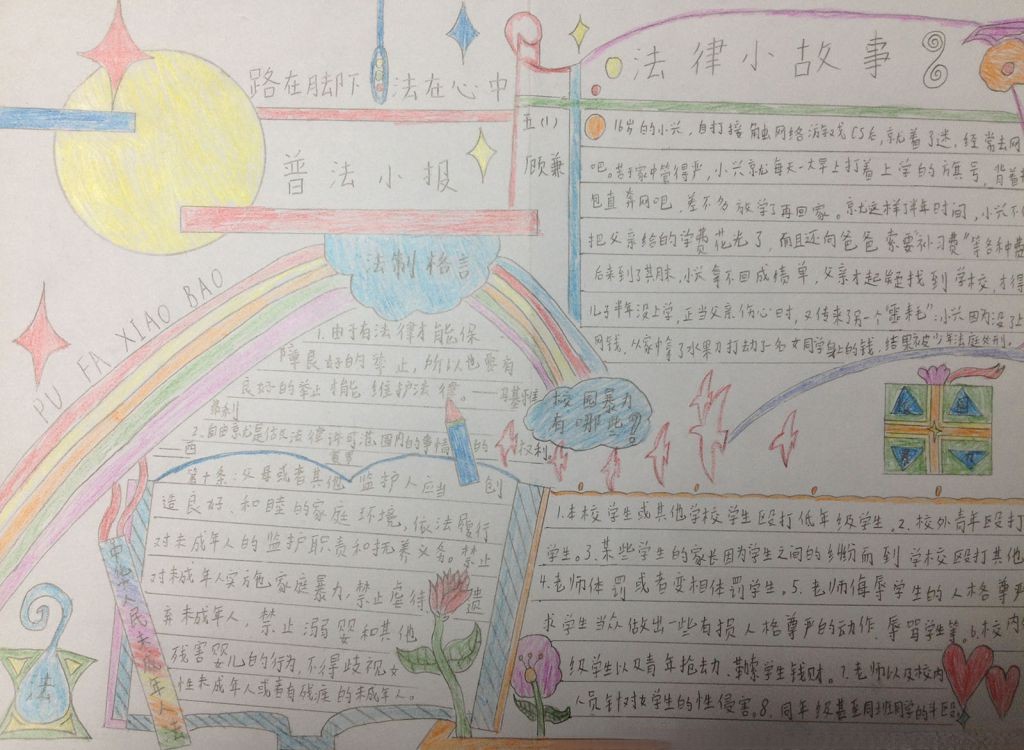 路在脚下 法在心中
普法小报
五(1)
顾兼
PU FA XIAO BAO
法制格言
1.由于有法律才能保
障良好的举止,所以也要有
良好的举止才能维护法律。——马基雅
弗利
2.自由就是做法律许可范围内的事情的权利。
——西塞罗
第十条:父母或者其他监护人应当创
造良好、和睦的家庭环境,依法履行
对未成年人的监护职责和抚养义务。禁止
对未成年人实施家庭暴力,禁止虐待、遗
弃未成年人,禁止溺婴和其他
残害婴儿的行为,不得歧视女
性未成年人或者有残疾的未成年人。
中华人民未成年人
法
法律小故事
16岁的小兴,自打接触网络游戏CS后,就着了迷,经常去网
吧。苦于家中管得严,小兴就每天一大早上打着上学的旗号,背着
包直奔网吧,差不多放学了再回家。就这样了半年时间,小兴不
把父亲给的学费花光了,而且还向爸爸索要"补习费"等各种费
后来到了其末,小兴拿不回成绩单,父亲才起疑找到学校,才得
儿子半年没上学,正当父亲伤心时,又传来了另一个"噩耗":小兴因为没了上
网钱,从家中拿了水果刀打劫了一名女同学身上的钱,结果被少年法庭处刑。
校园暴力
有哪些?
1.本校学生或其他学校学生殴打低年级学生。2.校外青年殴打
学生。3.某些学生的家长因为学生之间的纠纷而到学校殴打其他
4.老师体罚或者变相体罚学生。5.老师侮辱学生的人格尊严
求学生当众做出一些有损人格尊严的动作、辱骂学生等。6.校内
级学生以及青年抢去力、勒索学生钱财。7.老师以及校内
人员针对女学生的性侵害。8.同年级甚至同班同学的斗殴。